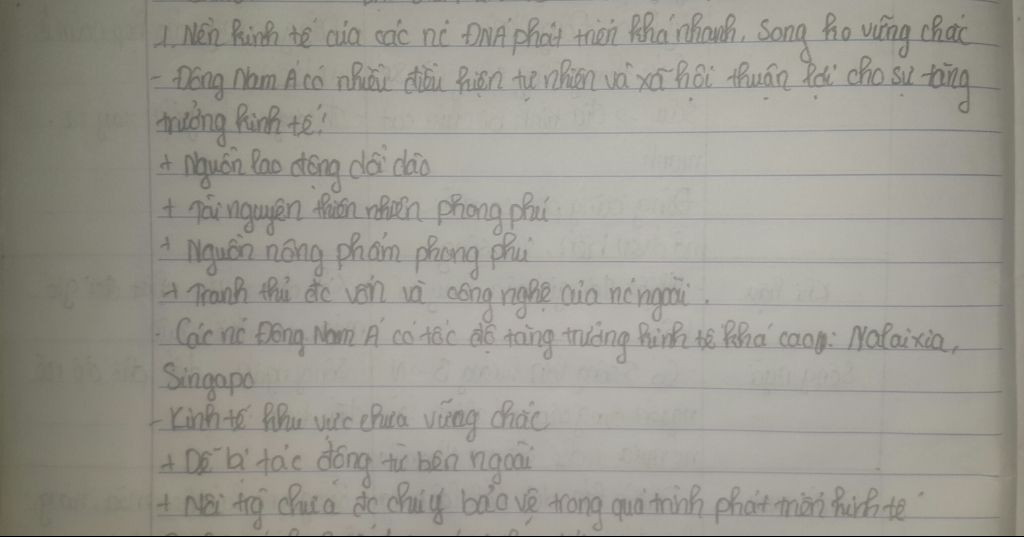 1. Nền kinh tế của các nc ĐNÁ phát triển khá nhanh, Song ko vững chắc
- Đông Nam Á có nhiều điều kiện tự nhiên và xã hội thuận lợi cho sự tăng
trưởng kinh tế:
+ Nguồn lao động dồi dào
+ Tài nguyên thiên nhiên phong phú
+ Nguồn nông phẩm phong phú
+ Tranh thủ đc vốn và công nghệ của nc ngoài.
- Các nc Đông Nam Á có tốc độ tăng trưởng kinh tế khá cao: Malaixia,
Singapo
- Kinh tế khu vực chưa vững chắc
+ Dễ bị tác động từ bên ngoài
+ chưa đc chú ý bảo vệ trong quá trình phát triển kinh tế